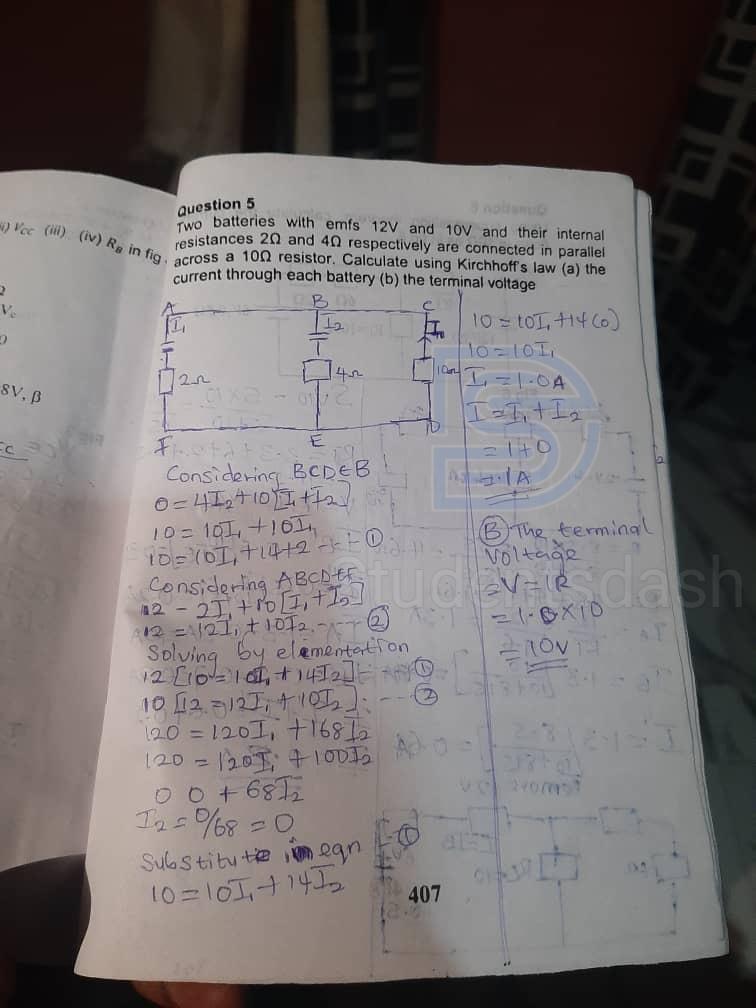 ii) Vcc (iii) (iv) RB in fig.
8V, β
Question 5
Two batteries with emfs 12V and 10V and their internal
resistances 2Ω and 4Ω respectively are connected in parallel
across a 10Ω resistor. Calculate using Kirchhoff's law (a) the
current through each battery (b) the terminal voltage
A B C
I₁ I₂
2Ω 4Ω 10Ω
F E D
Considering BCDEB
0 = 4I₂ + 10[I₁ + I₂]
10 = 10I₁ + 10I₁
10 = 10I₁ + 14+2 --- ①
Considering ABCDEF
12 - 2I₁ + 10[I₁ + I₂]
12 = 12I₁ + 10I₂ --- ②
Solving by elementation
12 [10 = 10I₁ + 14I₂] --- ①
10 [12 = 12I₁ + 10I₂] --- ②
120 = 120I₁ + 168I₂
120 = 120I₁ + 100I₂
0 0 + 68I₂
I₂ = 0/68 = 0
Substitute in eqn ①
10 = 10I₁ + 14I₂
10 = 10I₁ + 14(0)
10 = 10I₁
I₁ = 1.0A
I = I₁ + I₂
= 1 + 0
= 1A
Ⓑ The terminal
Voltage
= V = IR
= 1.0 × 10
= 10V
407
studentsdash